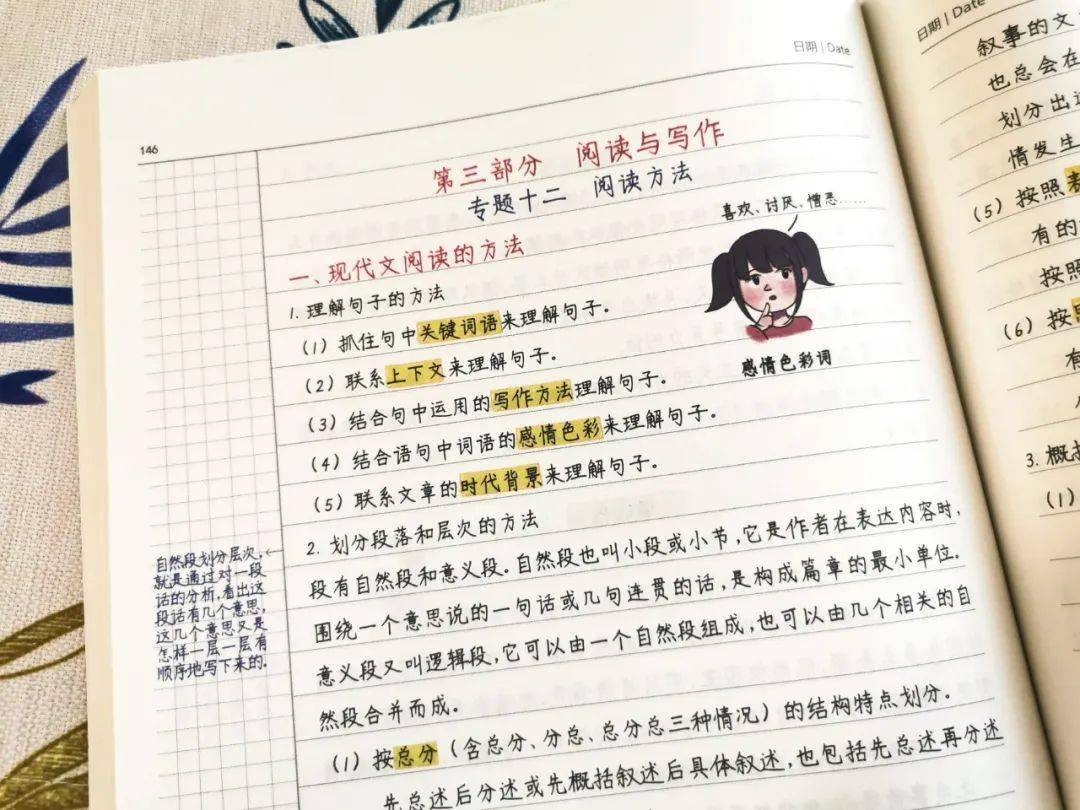 日期 | Date
146
第三部分 阅读与写作
专题十二 阅读方法
喜欢、讨厌、憎恶……
感情色彩词
一、现代文阅读的方法
1. 理解句子的方法
(1) 抓住句中关键词语来理解句子。
(2) 联系上下文来理解句子。
(3) 结合句中运用的写作方法理解句子。
(4) 结合语句中词语的感情色彩来理解句子。
(5) 联系文章的时代背景来理解句子。
2. 划分段落和层次的方法
段有自然段和意义段。自然段也叫小段或小节,它是作者在表达内容时,
围绕一个意思说的一句话或几句连贯的话,是构成篇章的最小单位。
意义段又叫逻辑段,它可以由一个自然段组成,也可以由几个相关的自
然段合并而成。
(1) 按总分(含总分、分总、总分总三种情况)的结构特点划分。
先总述后分述或先概括叙述后具体叙述,也包括先总述再分述
自然段划分层次,
就是通过对一段
话的分析,看出这
段话有几个意思,
这几个意思又是
怎样一层一层有
顺序地写下来的.
日期 | Date
叙事的文
也总会在
划分出
情发生
(5) 按照
有的
按照
(6) 按
有
3. 概
(1)